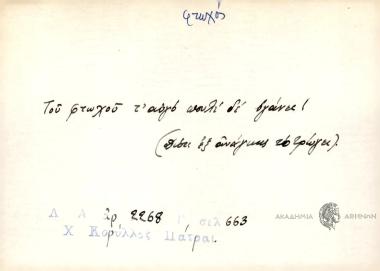 φτωχός
Τοῦ φτωχοῦ τ' αὐγό πουλί δέ βγάνει!
(διότι ἐξ ἀνάγκης τό τρώγει).
Λ Α ἀρ 2268 Γ σελ 663
Χ Κορύλλος Πάτραι
ΑΚΑΔΗΜΙΑ ΑΘΗΝΩΝ